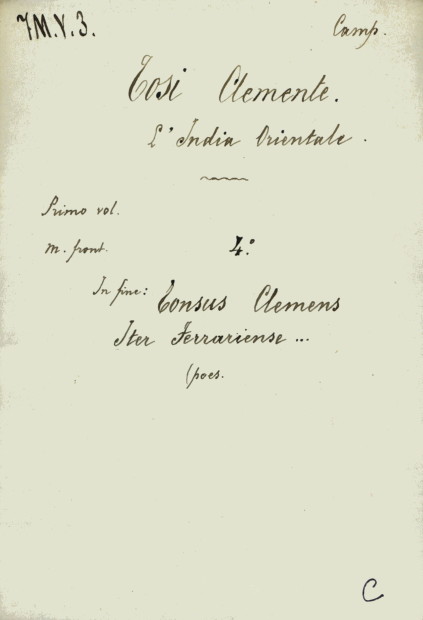 7M.V.3.
Camp.
Tosi Clemente.
L'India Orientale.
Primo vol.
m. front.
4.°
In fine: Tonsus Clemens
Iter Ferrariense ...
(poes.
C